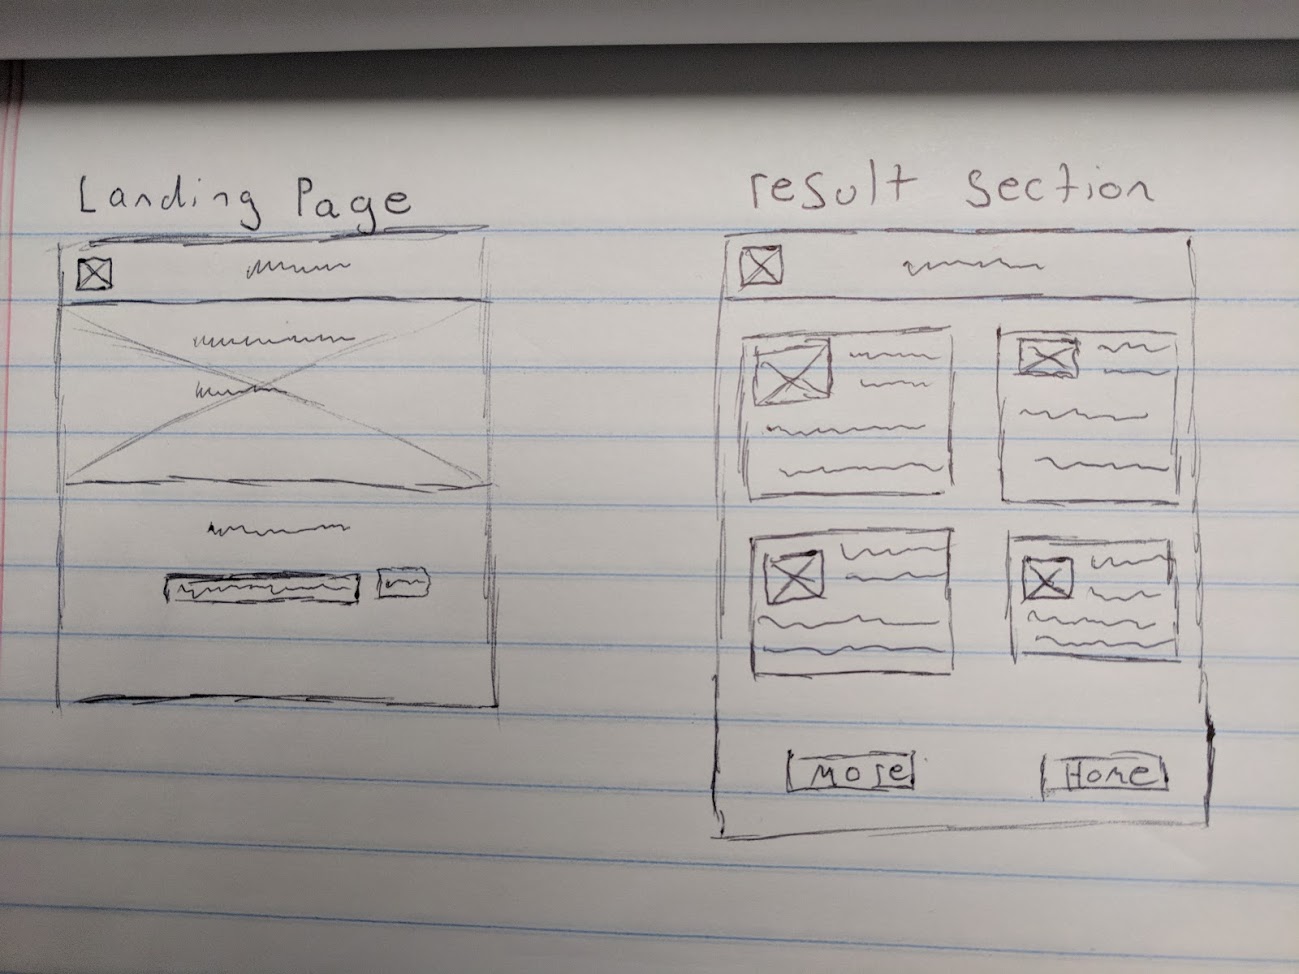 Landing Page
result section
More
Home